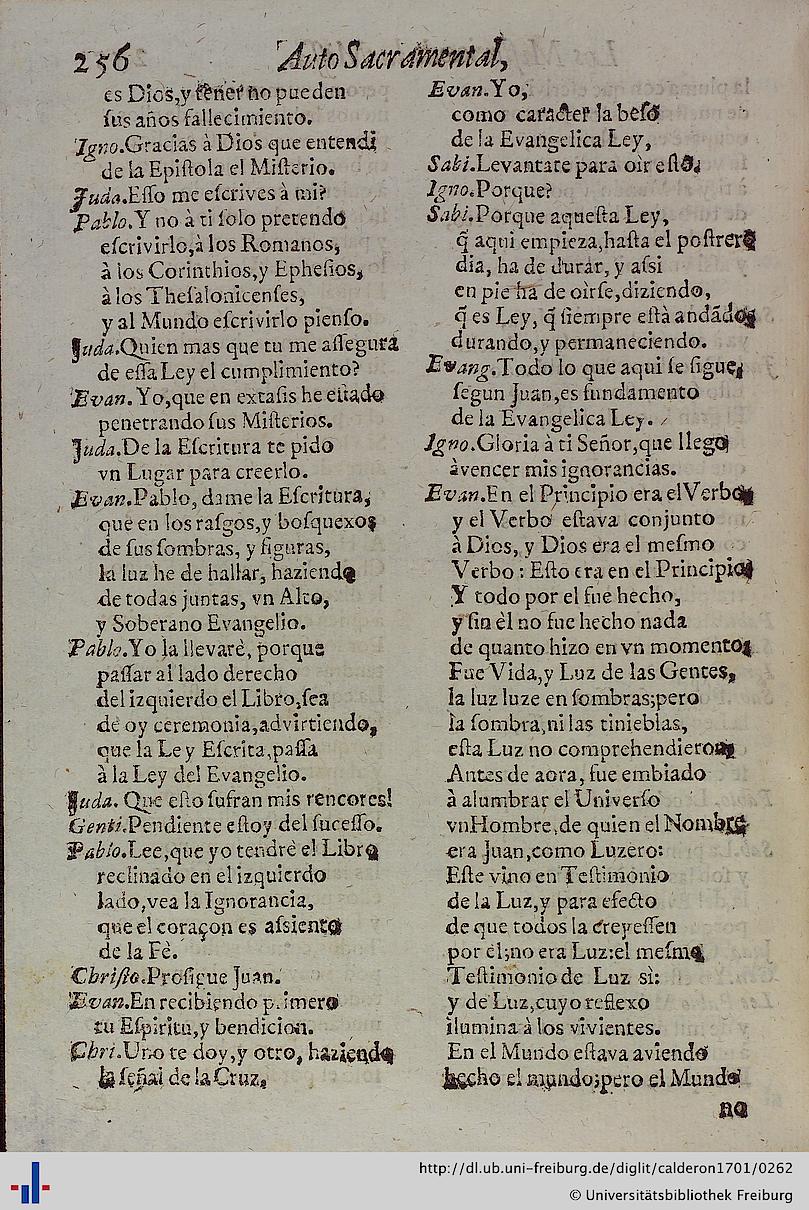 256 Auto Sacramental,
es Dios,y tener no pueden
ſus años fallecimiento.
Igno.Gracias à Dios que entendi
de la Epiſtola el Miſterio.
Juda.Eſſo me eſcrives à mi?
Pablo.Y no à ti ſolo pretendo
eſcrivirlo,à los Romanos,
à los Corinthios,y Epheſios,
à los Theſalonicenſes,
y al Mundo eſcrivirlo pienſo.
Juda.Quien mas que tu me aſſegura
de eſſa Ley el cumplimiento?
Evan. Yo,que en extaſis he eſtado
penetrando ſus Miſterios.
Juda.De la Eſcritura te pido
vn Lugar para creerlo.
Evan.Pablo, dame la Eſcritura,
que en los raſgos,y boſquexos
de ſus ſombras, y figuras,
la luz he de hallar, haziendo
de todas juntas, vn Alto,
y Soberano Evangelio.
Pablo.Yo la llevarè, porque
paſſar al lado derecho
del izquierdo el Libro,ſea
de oy ceremonia,advirtiendo,
que la Ley Eſcrita,paſſa
à la Ley del Evangelio.
Juda. Que eſto ſufran mis rencores!
Genti.Pendiente eſtoy del ſuceſſo.
Pablo.Lee,que yo tendrè el Libro
reclinado en el izquierdo
lado,vea la Ignorancia,
que el coraçon es aſsiento
de la Fè.
Chriſto.Proſigue Juan.
Evan.En recibiendo primero
tu Eſpiritu,y bendicion.
Chri.Uno te doy,y otro, haziendo
la ſeñal de la Cruz,
Evan.Yo,
como caracter la beſo
de la Evangelica Ley,
Sabi.Levantate para oìr eſto.
Igno.Porque?
Sabi.Porque aqueſta Ley,
q̃ aqui empieza,haſta el poſtrero
dia, ha de durar, y aſsi
en pie ha de oirſe,diziendo,
q̃ es Ley, q̃ ſiempre eſtà andãdo,
durando,y permaneciendo.
Evang.Todo lo que aqui ſe ſigue,
ſegun Juan,es fundamento
de la Evangelica Ley.
Igno.Gloria à ti Señor,que llego
àvencer mis ignorancias.
Evan.En el Principio era elVerbo,
y el Verbo eſtava conjunto
à Dios, y Dios era el meſmo
Verbo : Eſto era en el Principio,
Y todo por el fue hecho,
y ſin èl no fue hecho nada
de quanto hizo en vn momento,
Fue Vida,y Luz de las Gentes,
la luz luze en ſombras;pero
la ſombra,ni las tinieblas,
eſta Luz no comprehendieron,
Antes de aora, fue embiado
à alumbrar el Univerſo
vnHombre,de quien el Nombre
era Juan,como Luzero:
Eſte vino en Teſtimonio
de la Luz,y para efecto
de que todos la creyeſſen
por èl;no era Luz:el meſmo
Teſtimonio de Luz sì:
y de Luz,cuyo reflexo
ilumina à los vivientes.
En el Mundo eſtava aviendo
hecho el mundo;pero el Mundo
no
http://dl.ub.uni-freiburg.de/diglit/calderon1701/0262
© Universitätsbibliothek Freiburg